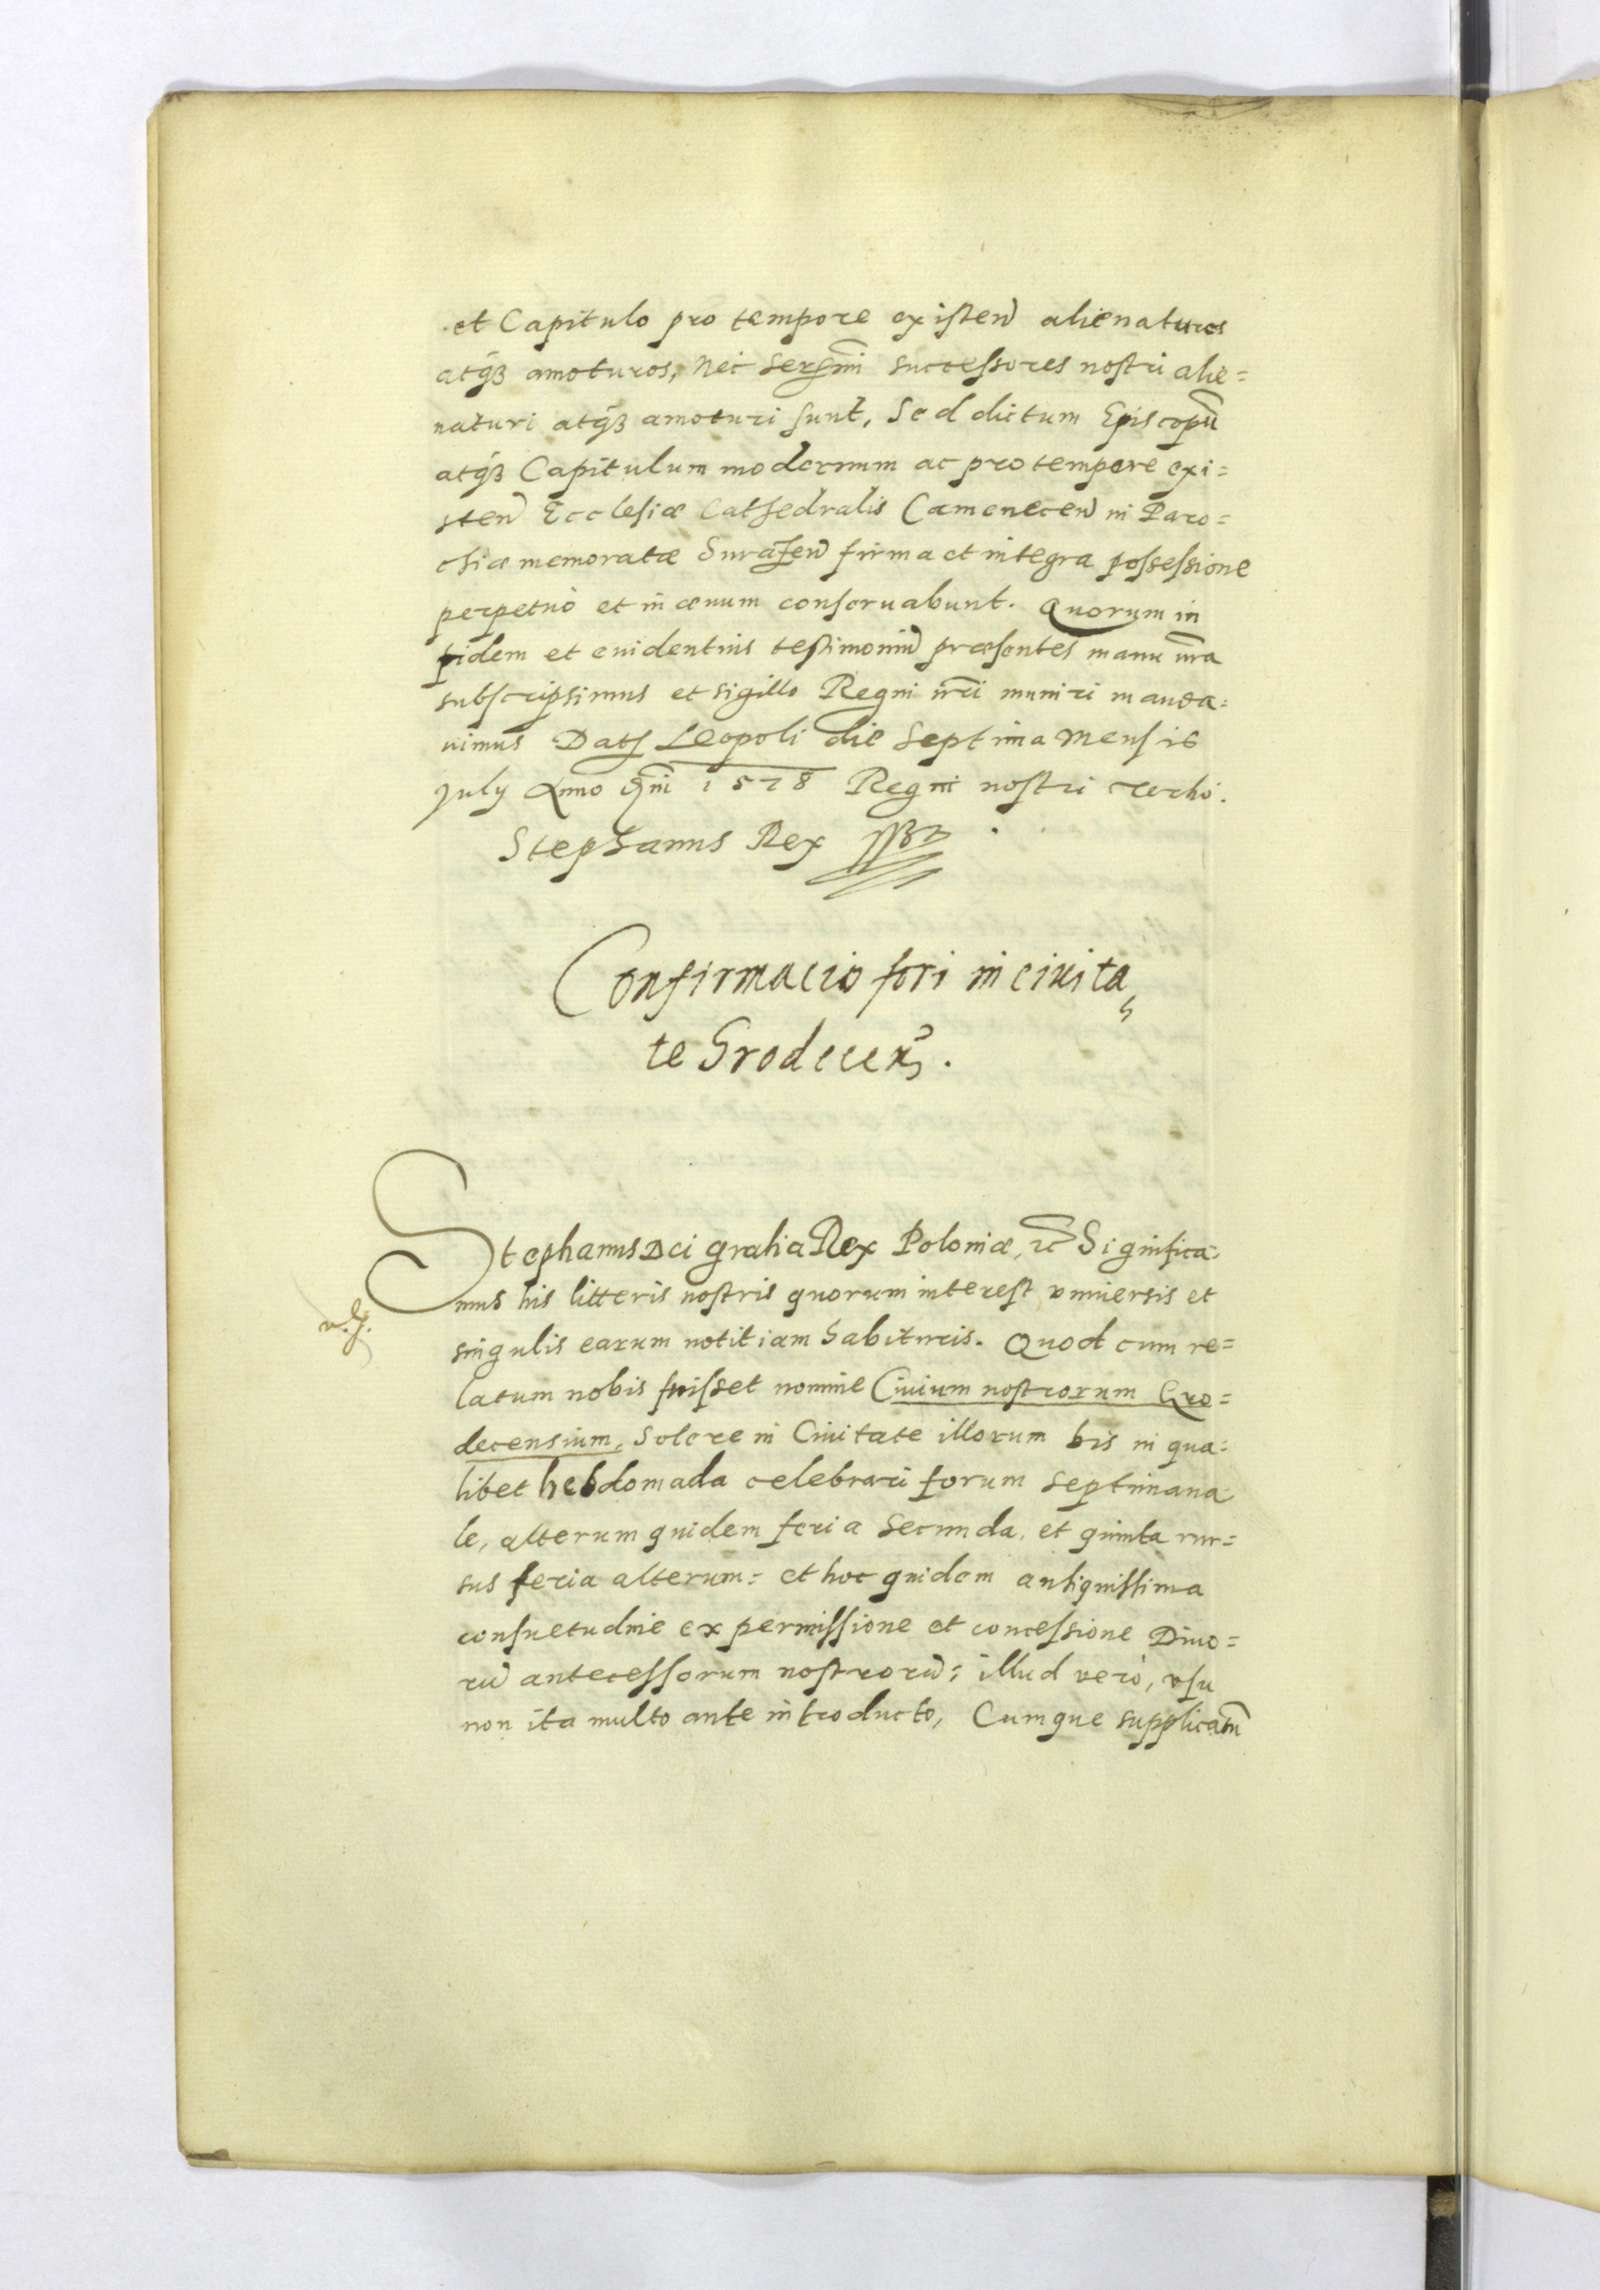 et Capitulo pro tempore existen alienaturos
atq3 amoturos, Nec Sersmi successores nostri alie=
naturi atq3 amoturi sunt, Sed dictum Episcopū
atq3 Capitulum modernum ac pro tempore exi=
sten Ecclesiæ Cathedralis Camenecen in Paro=
chiæ memoratæ firma et integra possessione
perpetuò et in æuum conseruabunt. Quorum in
fidem et euidentius testimoniū præsentes manu nr̄a
subscripsimus et sigillo Regni nr̄i muniri manda=
uimus Dat Leopoli die Septima Mensis
July Anno Dn̄i 1578 Regni nostri
Stephanus Rex
Confirmacio fori in ciuita
te Grodecen.
Stephanus Dei gratia Rex Poloniæ, etc Significa=
mus his litteris nostris quorum interest vniuersis et
singulis earum notitiam habituris. Quod cum re=
latum nobis fuisset nomine Ciuium nostrorum Gro=
decensium, Solere in Ciuitate illorum bis in qua=
libet hebdomada celebrari forum septimana
le, alterum quidem feria Secunda, et quinta rur=
sus feria alterum: et hoc quidem antiquissima
consuetudine ex permissione et concessione Diuo=
rū antecessorum nostrorū; illud verò, vsu
non ita multo ante introducto, Cumque supplicatū